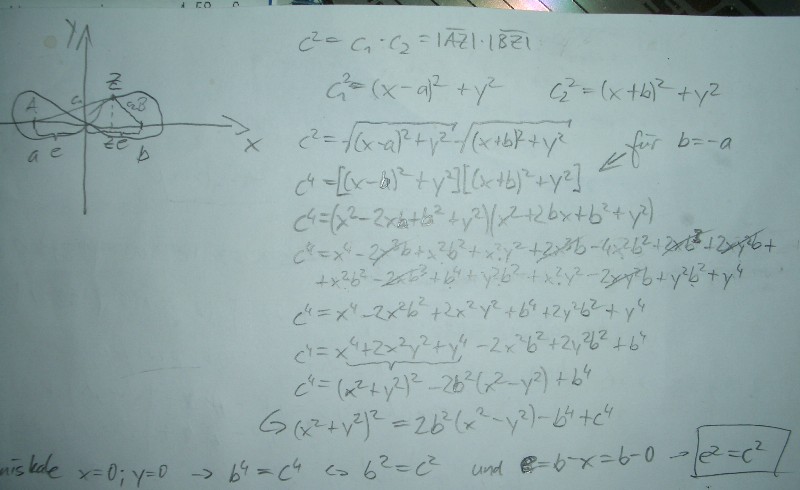 y
Z
A
c₁
c₂
B
x
a
e
e
b
c² = c₁ · c₂ = |AZ| · |BZ|
c₁² = (x-a)² + y²   c₂² = (x+b)² + y²
c² = √((x-a)² + y²) √((x+b)² + y²)   für b = -a
c⁴ = [(x-b)² + y²][(x+b)² + y²]
c⁴ = (x² - 2xb + b² + y²)(x² + 2bx + b² + y²)
c⁴ = x⁴ - 2x³b + x²b² + x²y² + 2x³b - 4x²b² + 2xb³ + 2xy²b +
+ x²b² - 2xb³ + b⁴ + y²b² + x²y² - 2xy²b + y²b² + y⁴
c⁴ = x⁴ - 2x²b² + 2x²y² + b⁴ + 2y²b² + y⁴
c⁴ = x⁴ + 2x²y² + y⁴ - 2x²b² + 2y²b² + b⁴
c⁴ = (x² + y²)² - 2b²(x² - y²) + b⁴
↳ (x² + y²)² = 2b²(x² - y²) - b⁴ + c⁴
niskate x=0; y=0 → b⁴ = c⁴ ⇔ b² = c² und e = b - x = b - 0 → e² = c²